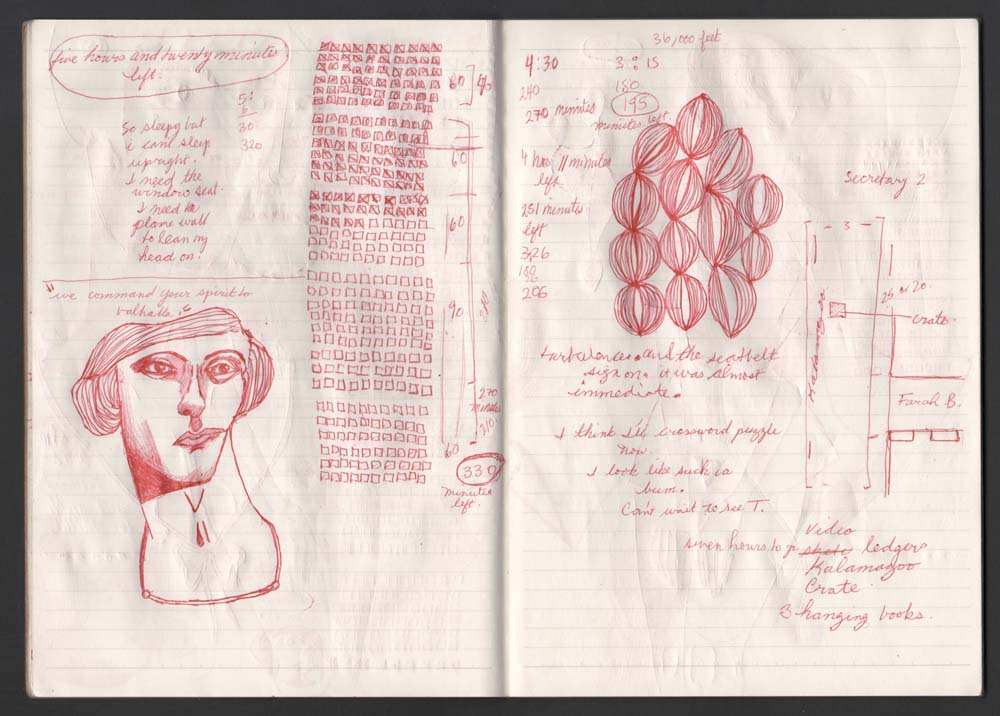 five hours and twenty minutes
left.
5:
30
320
So sleepy but
i cant sleep
upright.
I need the
window seat.
I need the
plane wall
to lean my
head on.
"we command your spirit to
valhalla."
60
60
60
90
60
270
minutes
210.
330
minutes
left.
36,000 feet
4:30
3:15
240
180
270 minutes
195
minutes left
4 hrs 11 minutes
left
251 minutes
left
3:26
180
26
206
turbulence. and the seatbelt
sign on. it was almost
immediate.
I think I'll crossword puzzle
now.
I look like such a
bum.
Can't wait to see T.
Secretary 2
3
25 or 20
Kalamazoo
crate.
Farah B.
seven hours to go
Video
ledgers
Kalamazoo
Crate
3 hanging books.